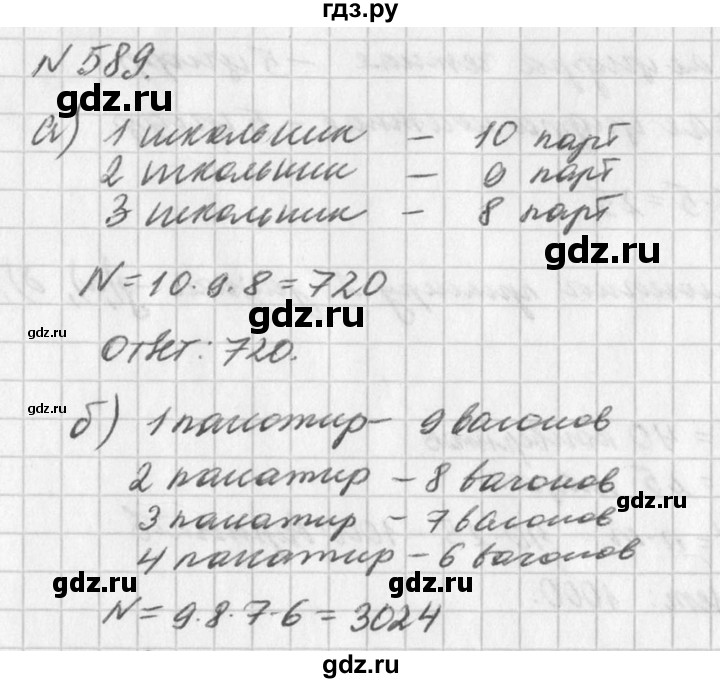 гдз.ру
N 589.
gdz.ru
а) 1 школьник – 10 парт
2 школьник – 9 парт
3 школьник – 8 парт
gdz.ru
N = 10·9·8 = 720
gdz.ru
gdz.ru
Ответ: 720.
gdz.ru
б) 1 пассажир – 9 вагонов
2 пассажир – 8 вагонов
gdz.ru
3 пассажир – 7 вагонов
4 пассажир – 6 вагонов
gdz.ru
gdz.ru
N = 9·8·7·6 = 3024
gdz.ru